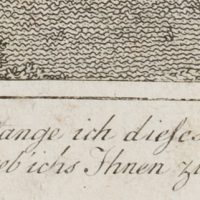 lange ich dieses
eb ichs Ihnen z